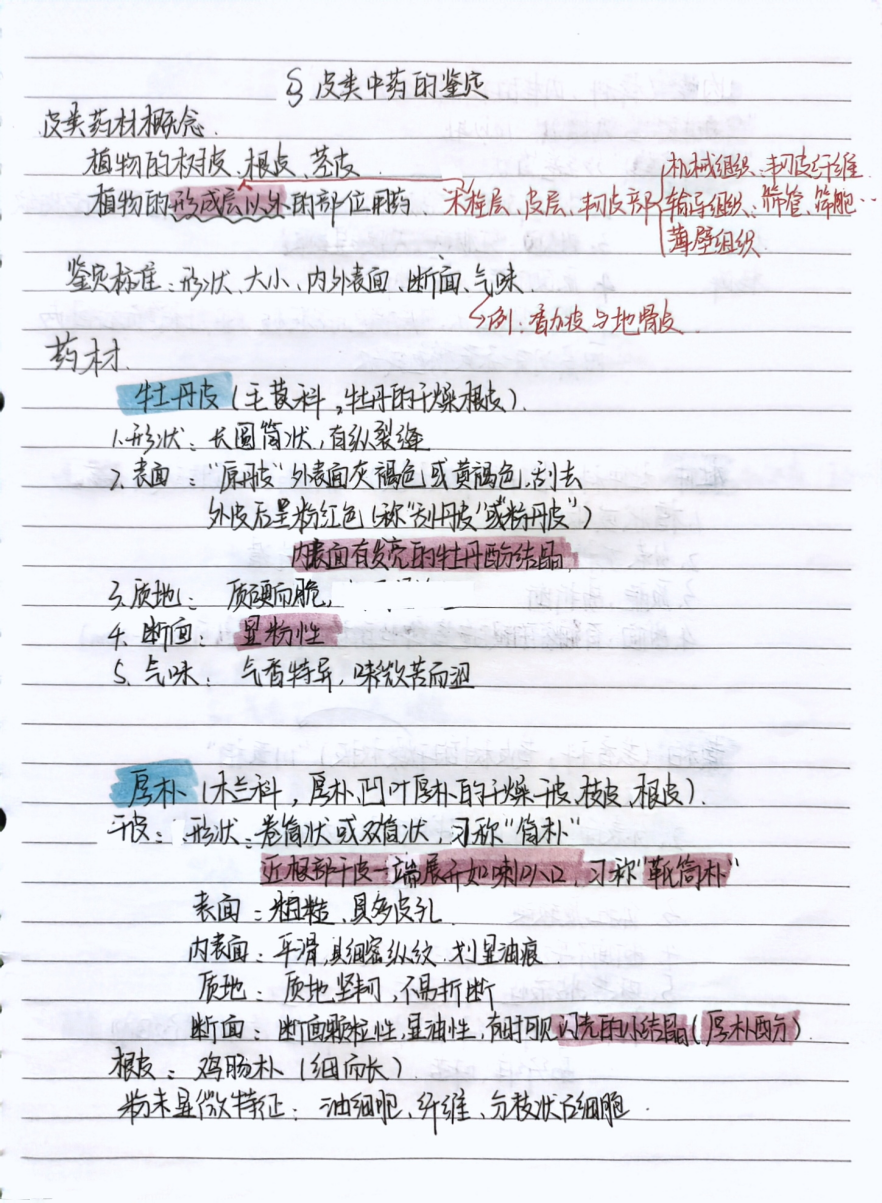 § 皮类中药的鉴定
皮类药材概念.
植物的树皮、根皮、茎皮
植物的形成层以外的部位用药. 木栓层、皮层、韧皮部
机械组织:韧皮纤维
输导组织:筛管、筛胞…
薄壁组织
鉴定标准:形状、大小、内外表面、断面、气味.
例:香加皮与地骨皮
药材.
牡丹皮(毛茛科,牡丹的干燥根皮).
1.形状:长圆筒状,有纵裂缝
2.表面:“原丹皮”外表面灰褐色或黄褐色,刮去
外皮后呈粉红色(称“刮丹皮”或“粉丹皮”)
内表面有发亮的牡丹酚结晶,
3.质地:质硬而脆,
4.断面:显粉性
5.气味:气香特异,味微苦而涩
厚朴(木兰科,厚朴、凹叶厚朴的干燥干皮、枝皮、根皮).
干皮:形状:卷筒状或双筒状,习称“筒朴”
近根部干皮一端展开如喇叭口,习称“靴筒朴”
表面:粗糙,具多皮孔
内表面:平滑,具细密纵纹.划显油痕
质地:质地坚韧,不易折断
断面:断面颗粒性,显油性,有时可见闪亮的小结晶(厚朴酚).
根皮:鸡肠朴(细而长).
粉末显微特征:油细胞、纤维、分枝状石细胞.